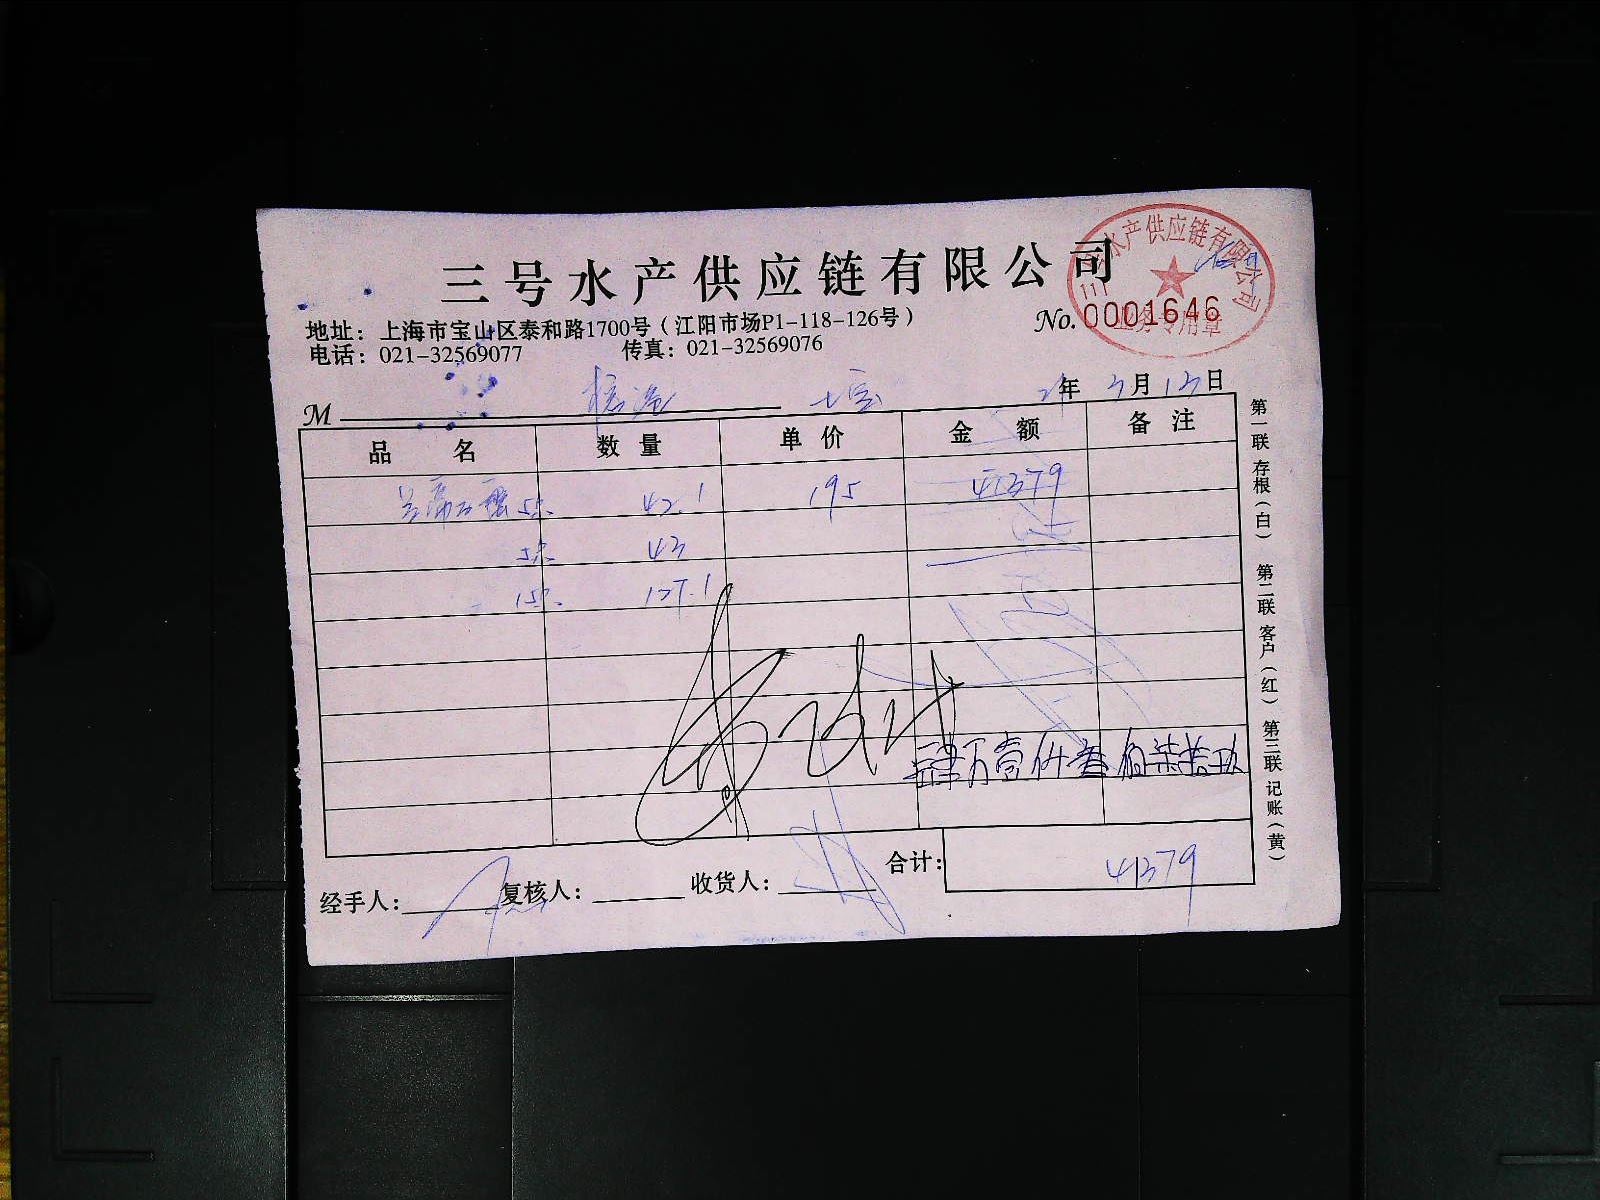 三号水产供应链有限公司
水产供应链有限公司
业务专用章
地址：上海市宝山区泰和路1700号（江阳市场P1-118-126号）
No. 0001646
电话：021-32569077 传真：021-32569076
M
年 3月13日
品名 数量 单价 金额 备注
42.1 195 41379
43
127.1
肆万壹仟叁佰柒拾玖
合计： 41379
经手人： 复核人： 收货人：
第一联 存根（白） 第二联 客户（红） 第三联 记账（黄）